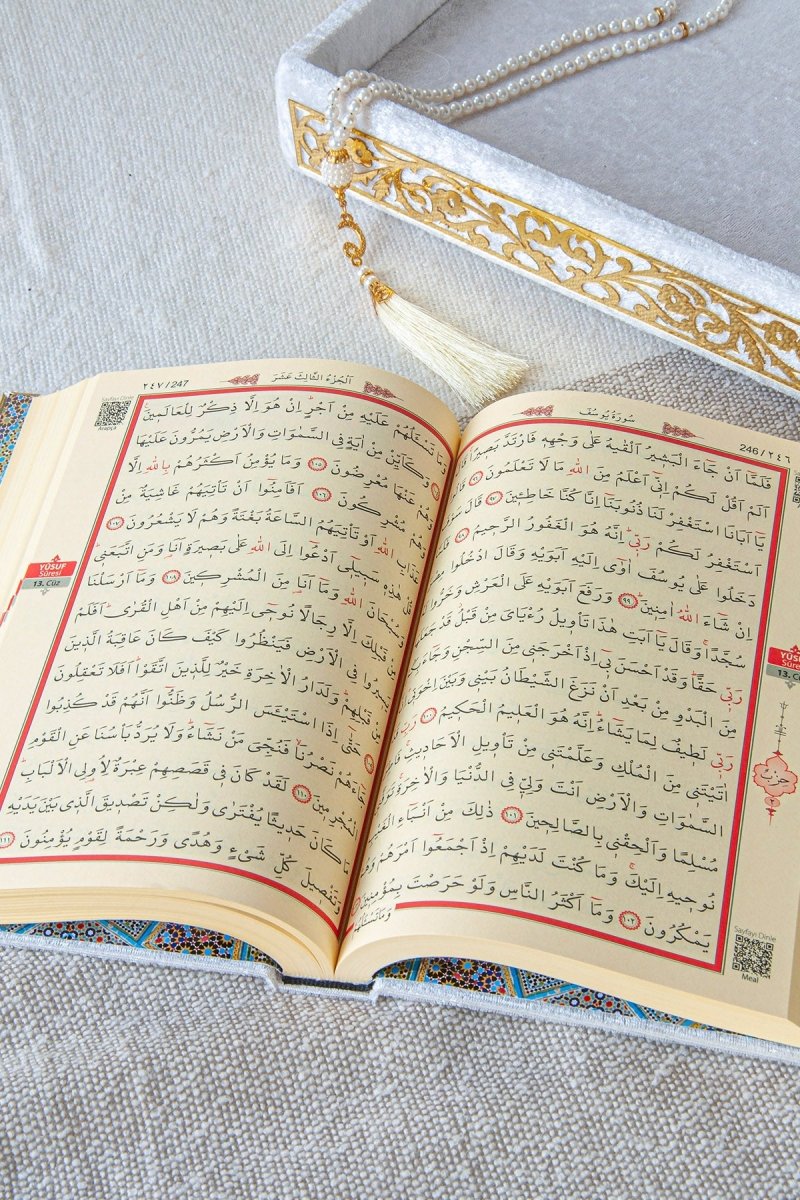 246/٢٤٦
سُورَةُ يُوسُفَ
فَلَمَّٓا اَنْ جَٓاءَ الْبَش۪يرُ اَلْقٰيهُ عَلٰى وَجْهِه۪ فَارْتَدَّ بَص۪يرًا
اَلَمْ اَقُلْ لَكُمْ اِنّ۪ٓي اَعْلَمُ مِنَ اللّٰهِ مَا لَا تَعْلَمُونَ ﴿٩٦﴾ قَالُوا
يَٓا اَبَانَا اسْتَغْفِرْ لَنَا ذُنُوبَنَٓا اِنَّا كُنَّا خَاطِـ۪ٔينَ ﴿٩٧﴾ قَالَ سَوْفَ
اَسْتَغْفِرُ لَكُمْ رَبّ۪ي اِنَّهُ هُوَ الْغَفُورُ الرَّح۪يمُ ﴿٩٨﴾
دَخَلُوا عَلٰى يُوسُفَ اٰوٰٓى اِلَيْهِ اَبَوَيْهِ وَقَالَ ادْخُلُوا
اِنْ شَٓاءَ اللّٰهُ اٰمِن۪ينَ ﴿٩٩﴾ وَرَفَعَ اَبَوَيْهِ عَلَى الْعَرْشِ وَخَرُّوا
سُجَّدًا وَقَالَ يَٓا اَبَتِ هٰذَا تَاْو۪يلُ رُءْيَايَ مِنْ قَبْلُ قَدْ جَعَلَهَا
رَبّ۪ي حَقًّا وَقَدْ اَحْسَنَ ب۪ٓي اِذْ اَخْرَجَن۪ي مِنَ السِّجْنِ وَجَٓاءَ
مِنَ الْبَدْوِ مِنْ بَعْدِ اَنْ نَزَغَ الشَّيْطَانُ بَيْن۪ي وَبَيْنَ اِخْوَت۪ي
رَبّ۪ي لَط۪يفٌ لِمَا يَشَٓاءُ اِنَّهُ هُوَ الْعَل۪يمُ الْحَك۪يمُ ﴿١٠٠﴾ رَبِّ
اٰتَيْتَن۪ي مِنَ الْمُلْكِ وَعَلَّمْتَن۪ي مِنْ تَاْو۪يلِ الْاَحَاد۪يثِ
السَّمٰوَاتِ وَالْاَرْضِ اَنْتَ وَلِيّ۪ فِي الدُّنْيَا وَالْاٰخِرَةِ
مُسْلِمًا وَاَلْحِقْن۪ي بِالصَّالِح۪ينَ ﴿١٠١﴾ ذٰلِكَ مِنْ اَنْبَٓاءِ
نُوح۪يهِ اِلَيْكَ وَمَا كُنْتَ لَدَيْهِمْ اِذْ اَجْمَعُٓوا اَمْرَهُمْ وَهُمْ
يَمْكُرُونَ ﴿١٠٢﴾ وَمَٓا اَكْثَرُ النَّاسِ وَلَوْ حَرَصْتَ بِمُؤْمِن۪ينَ
وَمَا تَسْـَٔلُهُمْ
YÛSUF
Sûresi
حزب
Sayfayı Dinle
Meal
٢٤٧/247
اَلْجُزْءُ الثَّالِثَ عَشَرَ
وَمَا تَسْـَٔلُهُمْ عَلَيْهِ مِنْ اَجْرٍ اِنْ هُوَ اِلَّا ذِكْرٌ لِلْعَالَم۪ينَ
وَكَاَيِّنْ مِنْ اٰيَةٍ فِي السَّمٰوَاتِ وَالْاَرْضِ يَمُرُّونَ عَلَيْهَا
وَهُمْ عَنْهَا مُعْرِضُونَ ﴿١٠٥﴾ وَمَا يُؤْمِنُ اَكْثَرُهُمْ بِاللّٰهِ اِلَّا
وَهُمْ مُشْرِكُونَ ﴿١٠٦﴾ اَفَاَمِنُٓوا اَنْ تَاْتِيَهُمْ غَاشِيَةٌ مِنْ
عَذَابِ اللّٰهِ اَوْ تَاْتِيَهُمُ السَّاعَةُ بَغْتَةً وَهُمْ لَا يَشْعُرُونَ ﴿١٠٧﴾
قُلْ هٰذِه۪ سَب۪يل۪ٓي اَدْعُٓوا اِلَى اللّٰهِ عَلٰى بَص۪يرَةٍ اَنَا۬ وَمَنِ اتَّبَعَن۪ي
وَسُبْحَانَ اللّٰهِ وَمَٓا اَنَا۬ مِنَ الْمُشْرِك۪ينَ ﴿١٠٨﴾ وَمَٓا اَرْسَلْنَا
مِنْ قَبْلِكَ اِلَّا رِجَالًا نُوح۪ٓي اِلَيْهِمْ مِنْ اَهْلِ الْقُرٰى اَفَلَمْ
يَس۪يرُوا فِي الْاَرْضِ فَيَنْظُرُوا كَيْفَ كَانَ عَاقِبَةُ الَّذ۪ينَ
مِنْ قَبْلِهِمْ وَلَدَارُ الْاٰخِرَةِ خَيْرٌ لِلَّذ۪ينَ اتَّقَوْا اَفَلَا تَعْقِلُونَ
حَتّٰٓى اِذَا اسْتَيْـَٔسَ الرُّسُلُ وَظَنُّٓوا اَنَّهُمْ قَدْ كُذِبُوا
جَٓاءَهُمْ نَصْرُنَا فَنُجِّيَ مَنْ نَشَٓاءُ وَلَا يُرَدُّ بَاْسُنَا عَنِ الْقَوْمِ
الْمُجْرِم۪ينَ ﴿١١٠﴾ لَقَدْ كَانَ ف۪ي قَصَصِهِمْ عِبْرَةٌ لِاُو۬لِي الْاَلْبَابِ
مَا كَانَ حَد۪يثًا يُفْتَرٰى وَلٰكِنْ تَصْد۪يقَ الَّذ۪ي بَيْنَ يَدَيْهِ
وَتَفْص۪يلَ كُلِّ شَيْءٍ وَهُدًى وَرَحْمَةً لِقَوْمٍ يُؤْمِنُونَ ﴿١١١﴾
Sayfayı Dinle
Arapça
YÛSUF
Sûresi
13. Cüz